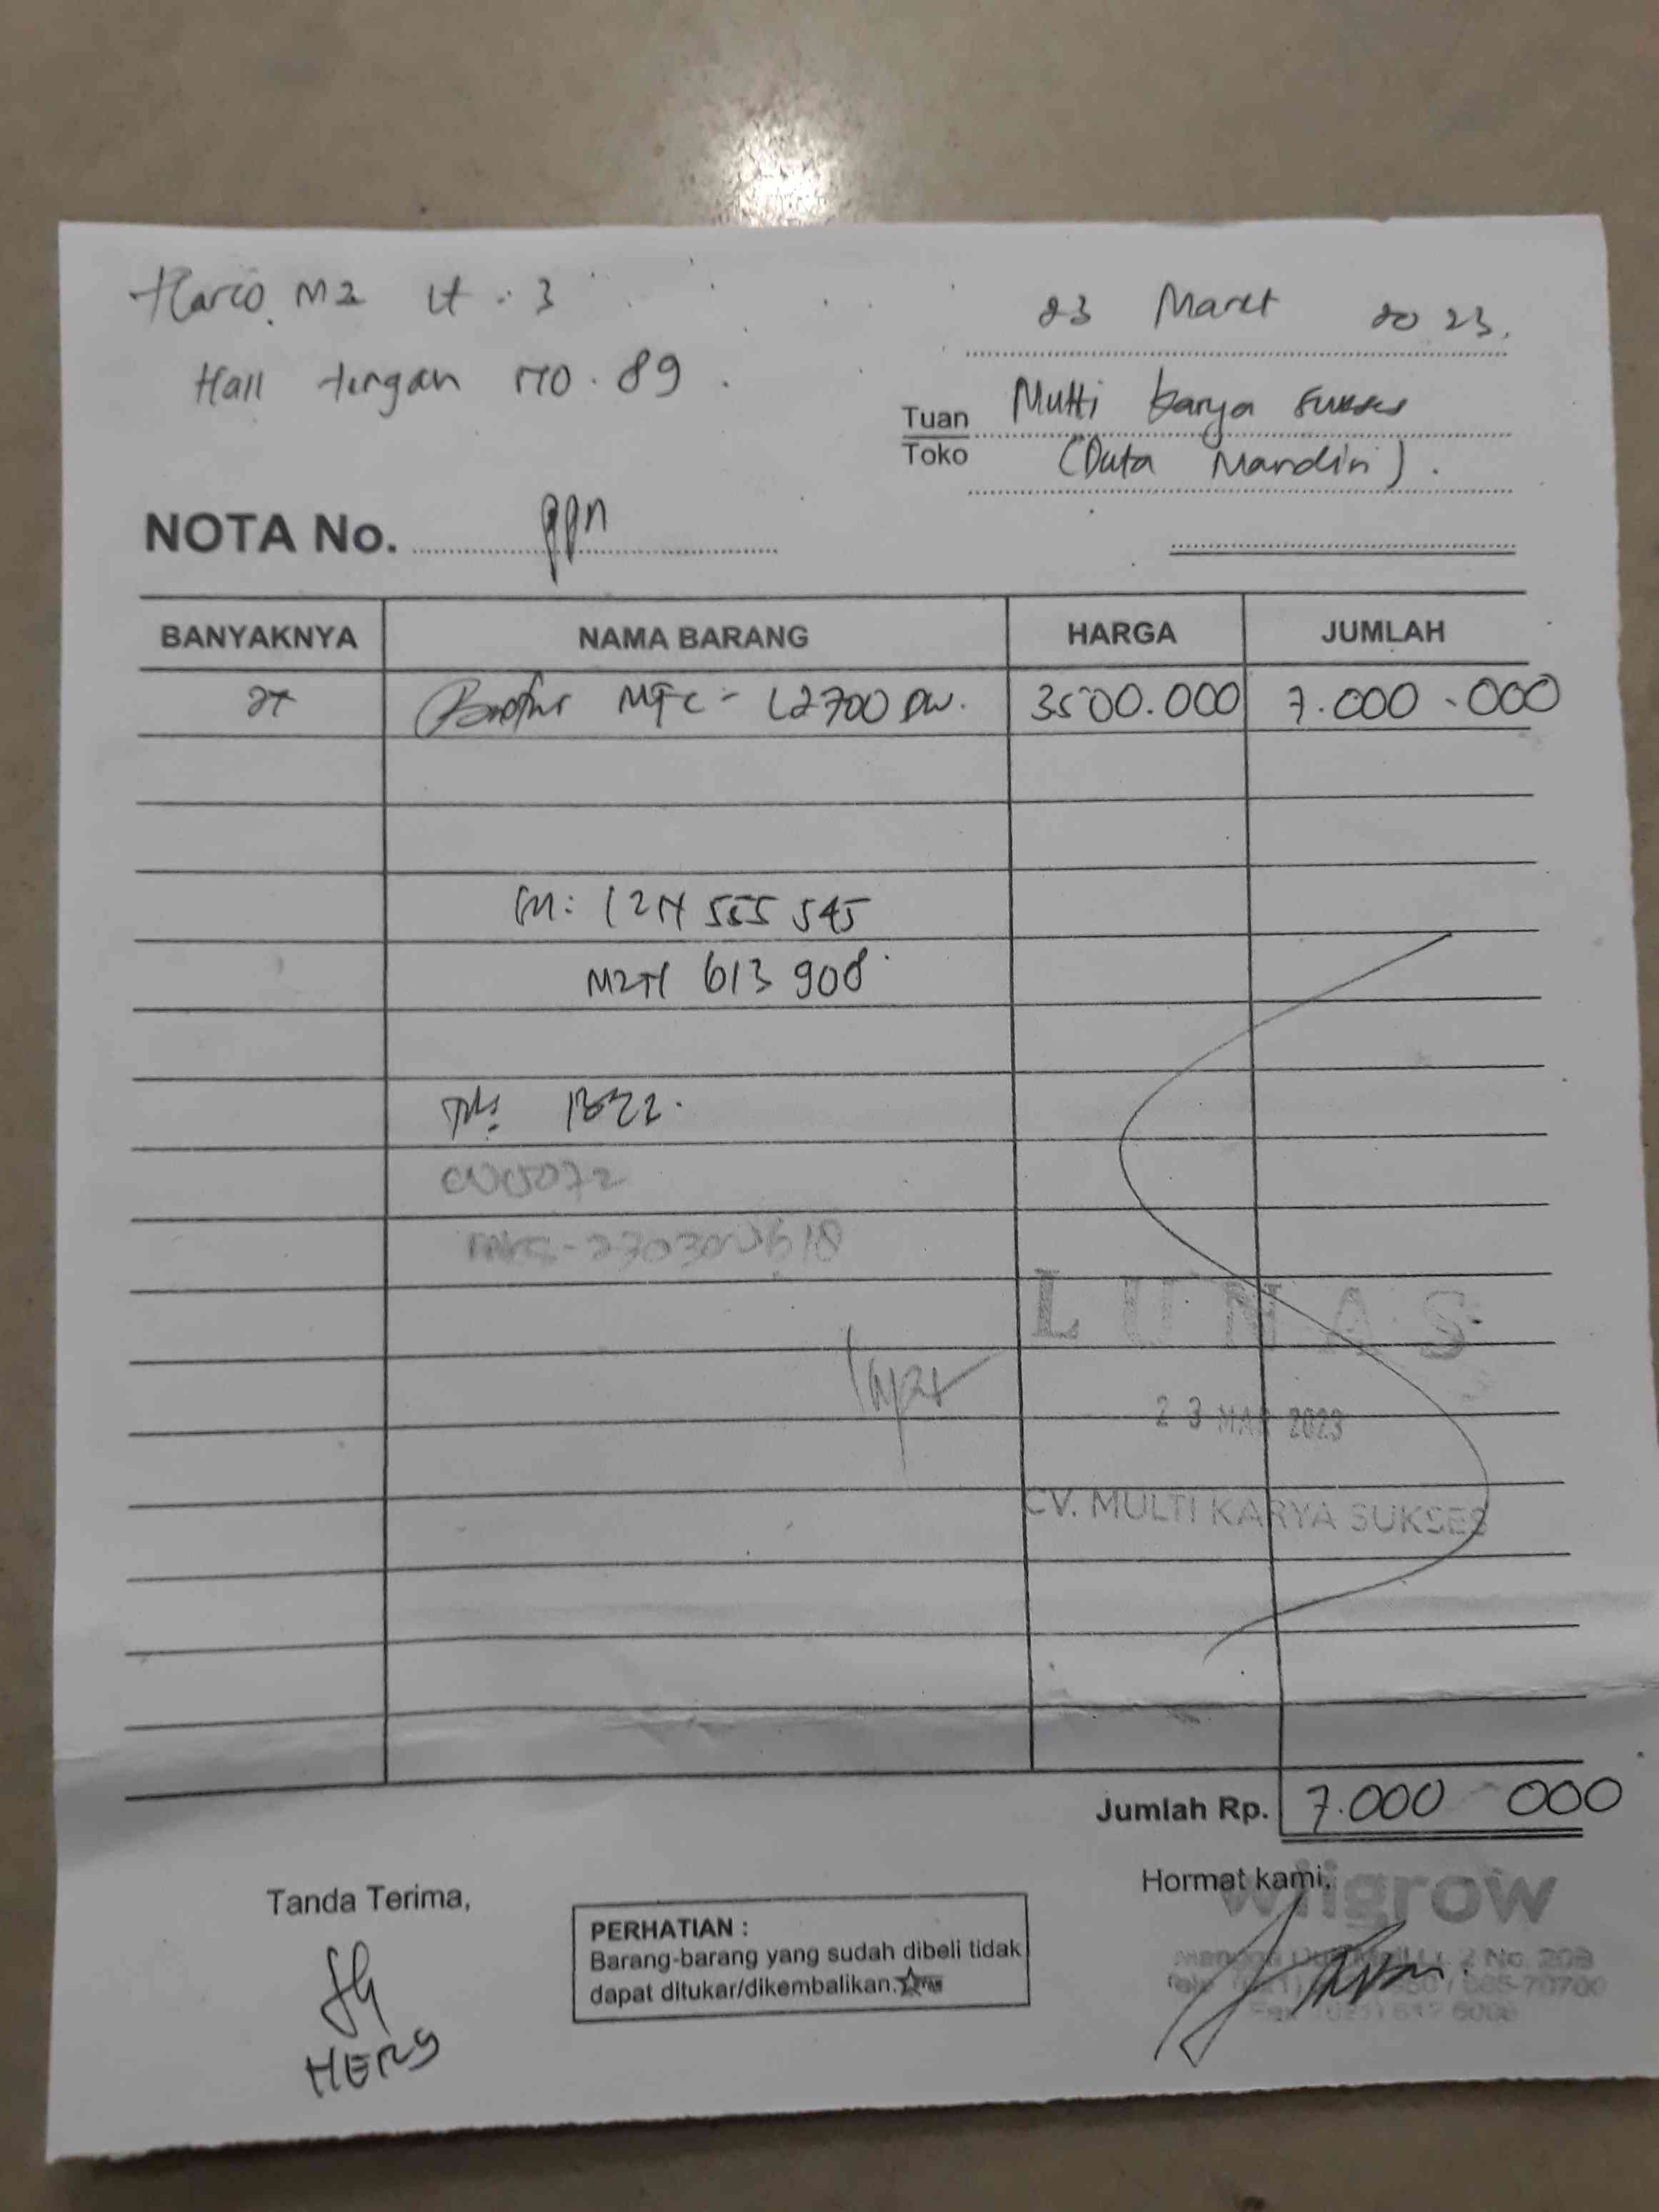 Harco. M2 lt. 3
Hall tengah NO. 89.
23 Maret 2023.
Tuan
Toko
Multi karya sukses
(Data Mandiri).
NOTA No. ppn
BANYAKNYA NAMA BARANG HARGA JUMLAH
2x Brother MFC-L2700 DW. 3500.000 7.000.000
SN: 555 545
613 908
LUNAS
23 MAR 2023
CV. MULTI KARYA SUKSES
Jumlah Rp. 7.000 000
Tanda Terima,
HERY
PERHATIAN :
Barang-barang yang sudah dibeli tidak
dapat ditukar/dikembalikan.
Hormat kami,
wiigrow
Mangga Dua Mall Lt. 2 No. 20B